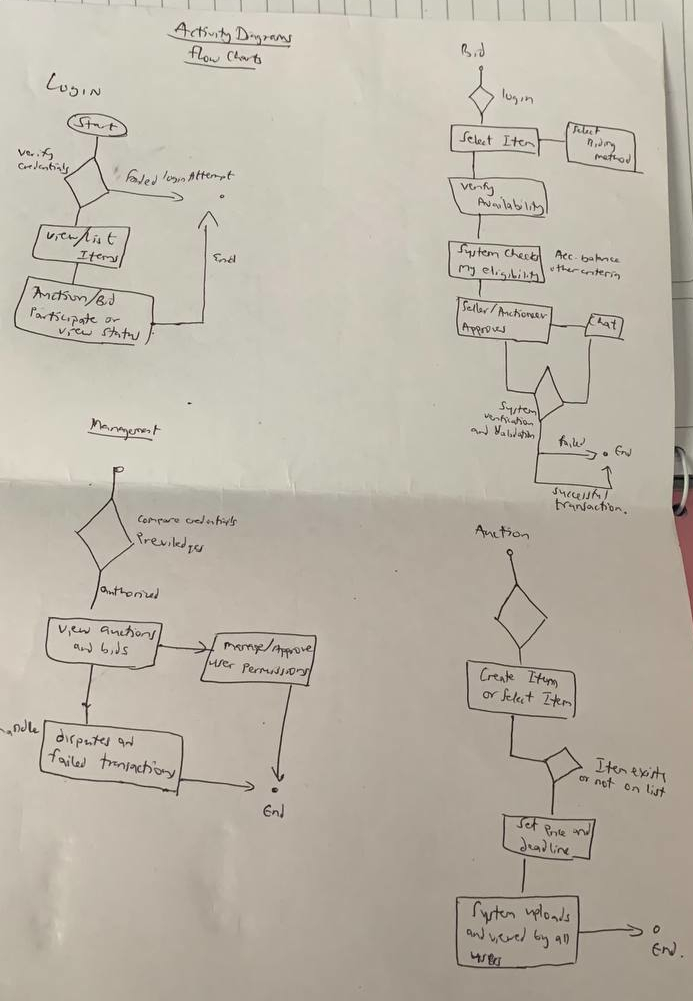 Activity Diagrams
flow charts
Login
Start
verify
credentials
Failed login Attempt
view/list
Items
End
Auction/Bid
Participate or
view status
Bid
login
Select Item
Select
Biding
method
verify
Availability
System Checks
my eligibility
Acc. balance
other criteria
Seller/Auctioneer
Approves
Chat
System
verification
and Validation
failed
End
Successful
transaction.
Management
Compare credentials
Previledges
authorized
view auctions
and bids
manage/Approve
user Permissions
handle
disputes and
failed transactions
End
Auction
Create Item
or Select Item
Item exists
or not on list
Set Price and
deadline
System uploads
and viewed by all
users
End.